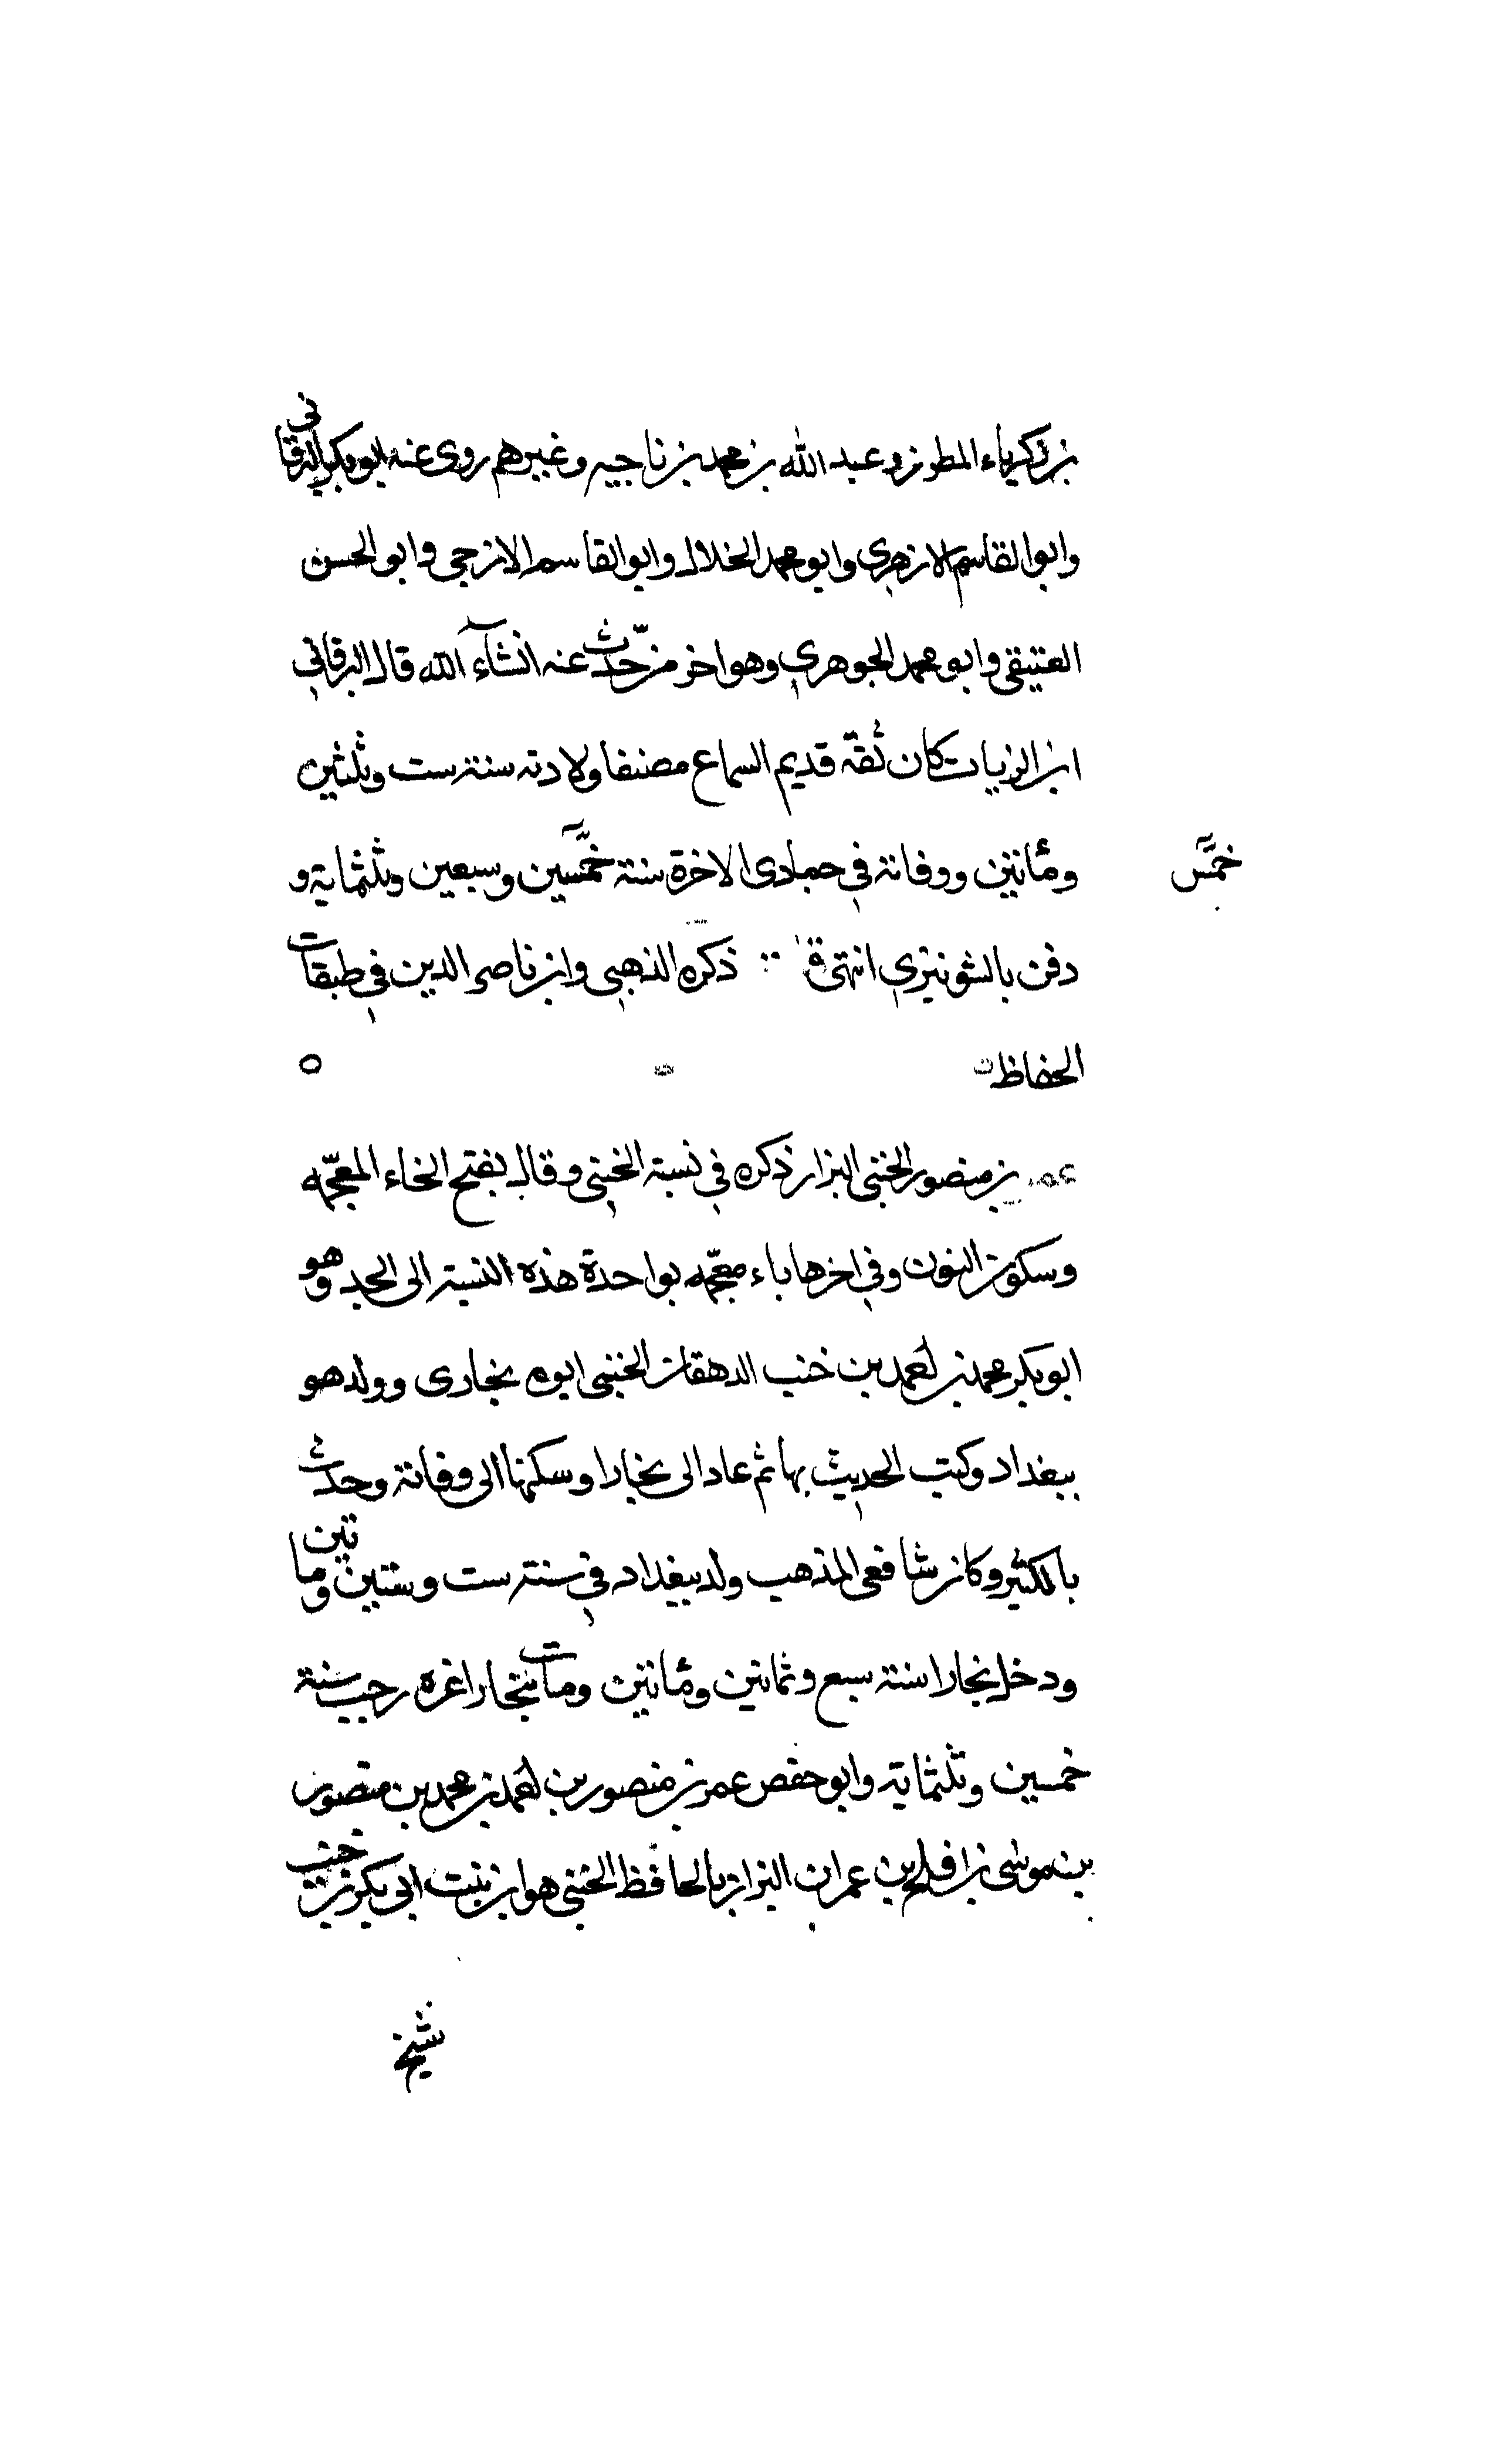 بن زكرياء المطرز وعبد الله بن محمد بن ناجيه وغيرهم روى عنه ابو بكر البرقاني
وابو القاسم الازهري وابو محمد الخلال وابو القاسم الازجى وابو الحسن
العتيقى وابو محمد الجوهري وهو اخر من حدّث عنه انشآء الله قال البرقاني
ابن الزيات كان ثقة قديم السماع مصنفا ولادته سنة ست وثلثين
ومائتين ووفاته في جمادى الاخرة سنة خمسين وسبعين وثلثماية و
خمس
دفن بالشونيزي انتهى ق ذكره الذهبي وابن ناصر الدين في طبقات
الحفاظ
عمر بن منصور الخنبي البزار ذكره في نسبة الخنبي وقال بفتح الخاء المعجمه
وسكون النون وفي اخرها باء معجمه بواحدة هذه النسبة الى الجد وهو
ابو بكر محمد بن احمد بن خنب الدهقان الخنبي ابوه بخارى وولد هو
ببغداد وكتب الحديث بها ثم عاد الى بخارا وسكنها الى وفاته وحدث
بالكثير وكان شافعى المذهب ولد ببغداد في سنة ست وستين ومائتين
ودخل بخارا سنة سبع وثمانين ومائتين ومات ببخارا غره رجب سنة
خمسين وثلثماية وابو حفص عمر بن منصور بن احمد بن محمد بن منصور
بن موسى بن افلح بن عمران البزاز الحافظ الخنبي هو ابن بنت ابي بكر بن خنب
شيخ